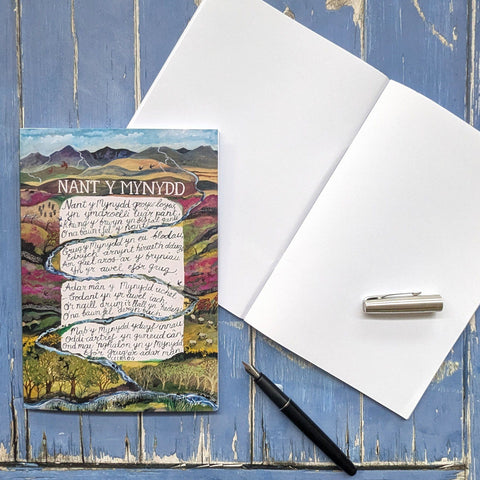 NANT Y MYNYDD
Nant y Mynydd groyw loyw
yn ymdroelli tua'r pant
Rhwng y brwyn yn sisial ganu
O na bawn i fel y nant
Grug y Mynydd yn eu blodau
Edrych arnynt hiraeth ddug
Am gael aros ar y bryniau
Yn yr awel efo'r grug
Adar mân y Mynydd uchel
Godant yn yr awel iach
O'r naill drum i'r llall yn 'hedeg
O na bawn fel deryn bach
Mab y Mynydd ydwyf innau
Oddi cartref yn gwneud cân
Ond mae 'nghalon yn y Mynydd
Efo'r grug a'r adar mân